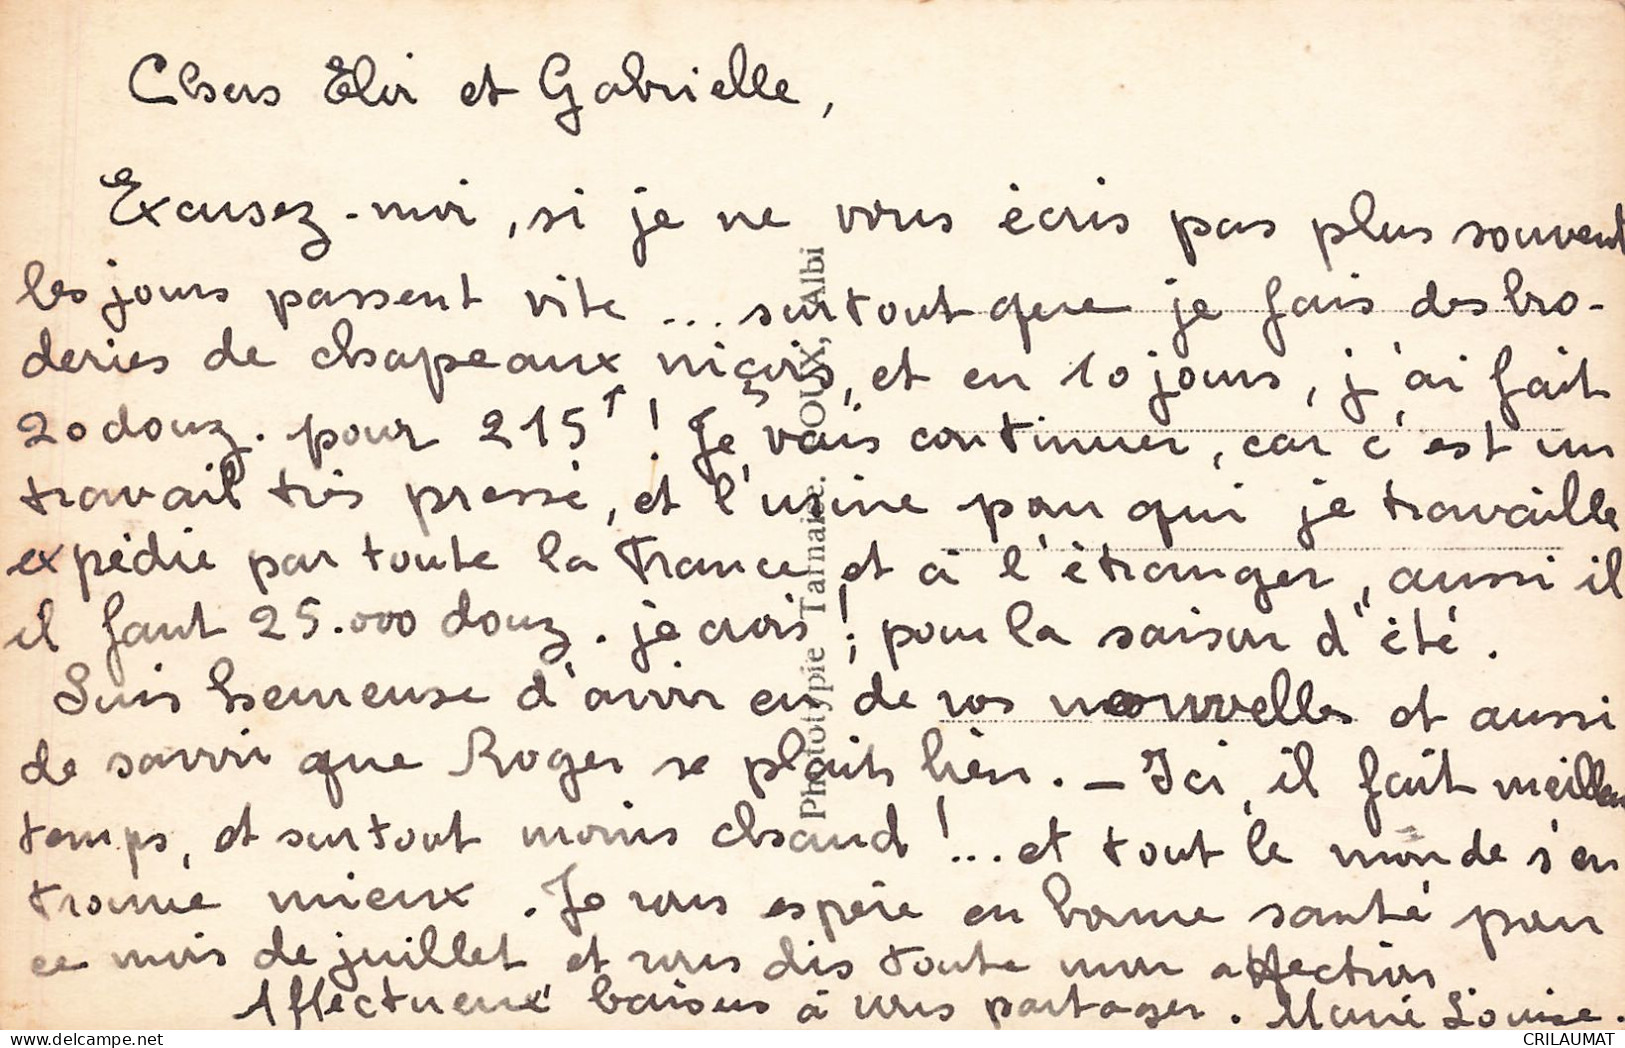 Chers Eloi et Gabrielle,
Excusez-moi, si je ne vous écris pas plus souvent
les jours passent vite ... surtout que je fais des bro-
deries de chapeaux niçois, et en 10 jours, j'ai fait
20 douz. pour 215f ! Je vais continuer, car c'est un
travail très pressé, et l'usine pour qui je travaille
expédie par toute la France et à l'étranger, aussi il
il faut 25.000 douz. je crois ! ; pour la saison d'été.
Suis heureuse d'avoir eu de vos nouvelles et aussi
de savoir que Roger se plait bien. - Ici, il fait meilleur
temps, et surtout moins chaud ! ... et tout le monde s'en
trouve mieux. Je vous espère en bonne santé pour
ce mois de juillet et vous dis toute mon affection
Affectueux baisers à vous partager. Marie Louise.
Phototypie Tarnaise. POUX, Albi
delcampe.net
CRILAUMAT